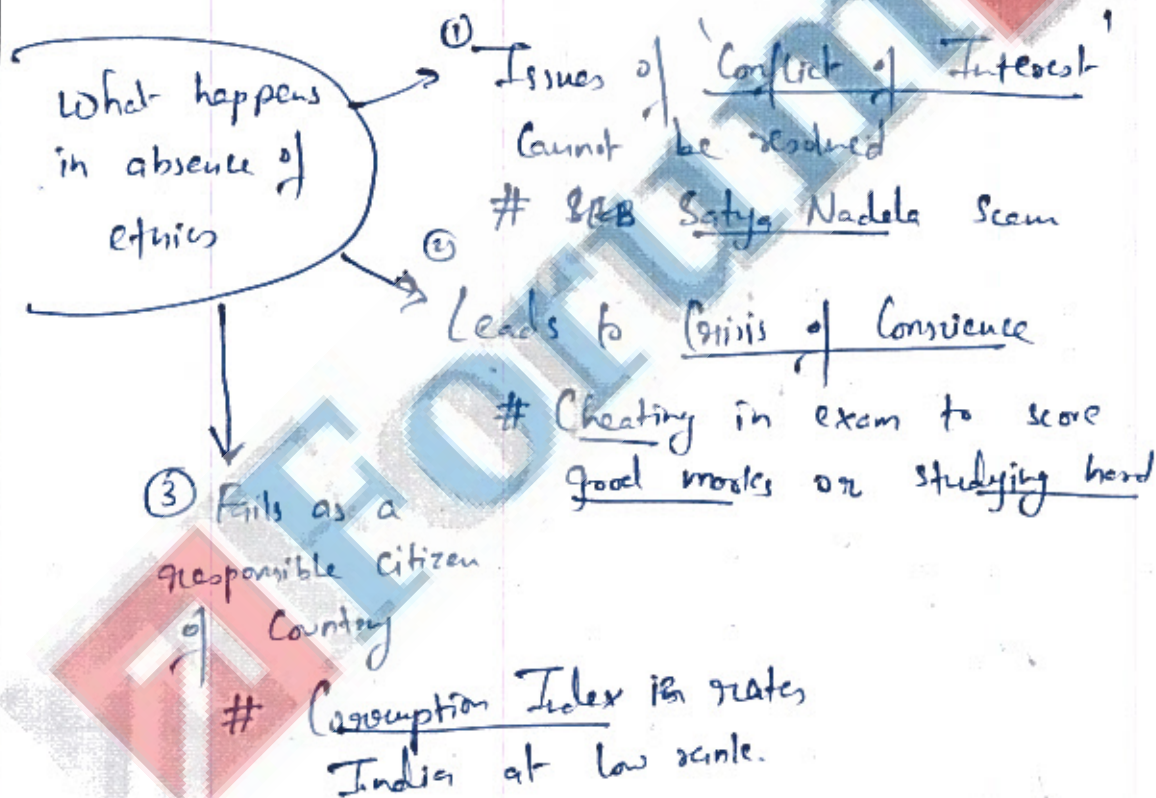 What happens
in absence of
ethics
① Issues of 'Conflict of Interest'
Cannot be resolved
# Satya Nadela Scam
②
Leads to Crisis of Conscience
# Cheating in exam to score
good marks or studying hard
③ Fails as a
responsible citizen
of Country
# Corruption Index rates
India at low rank.
Forum